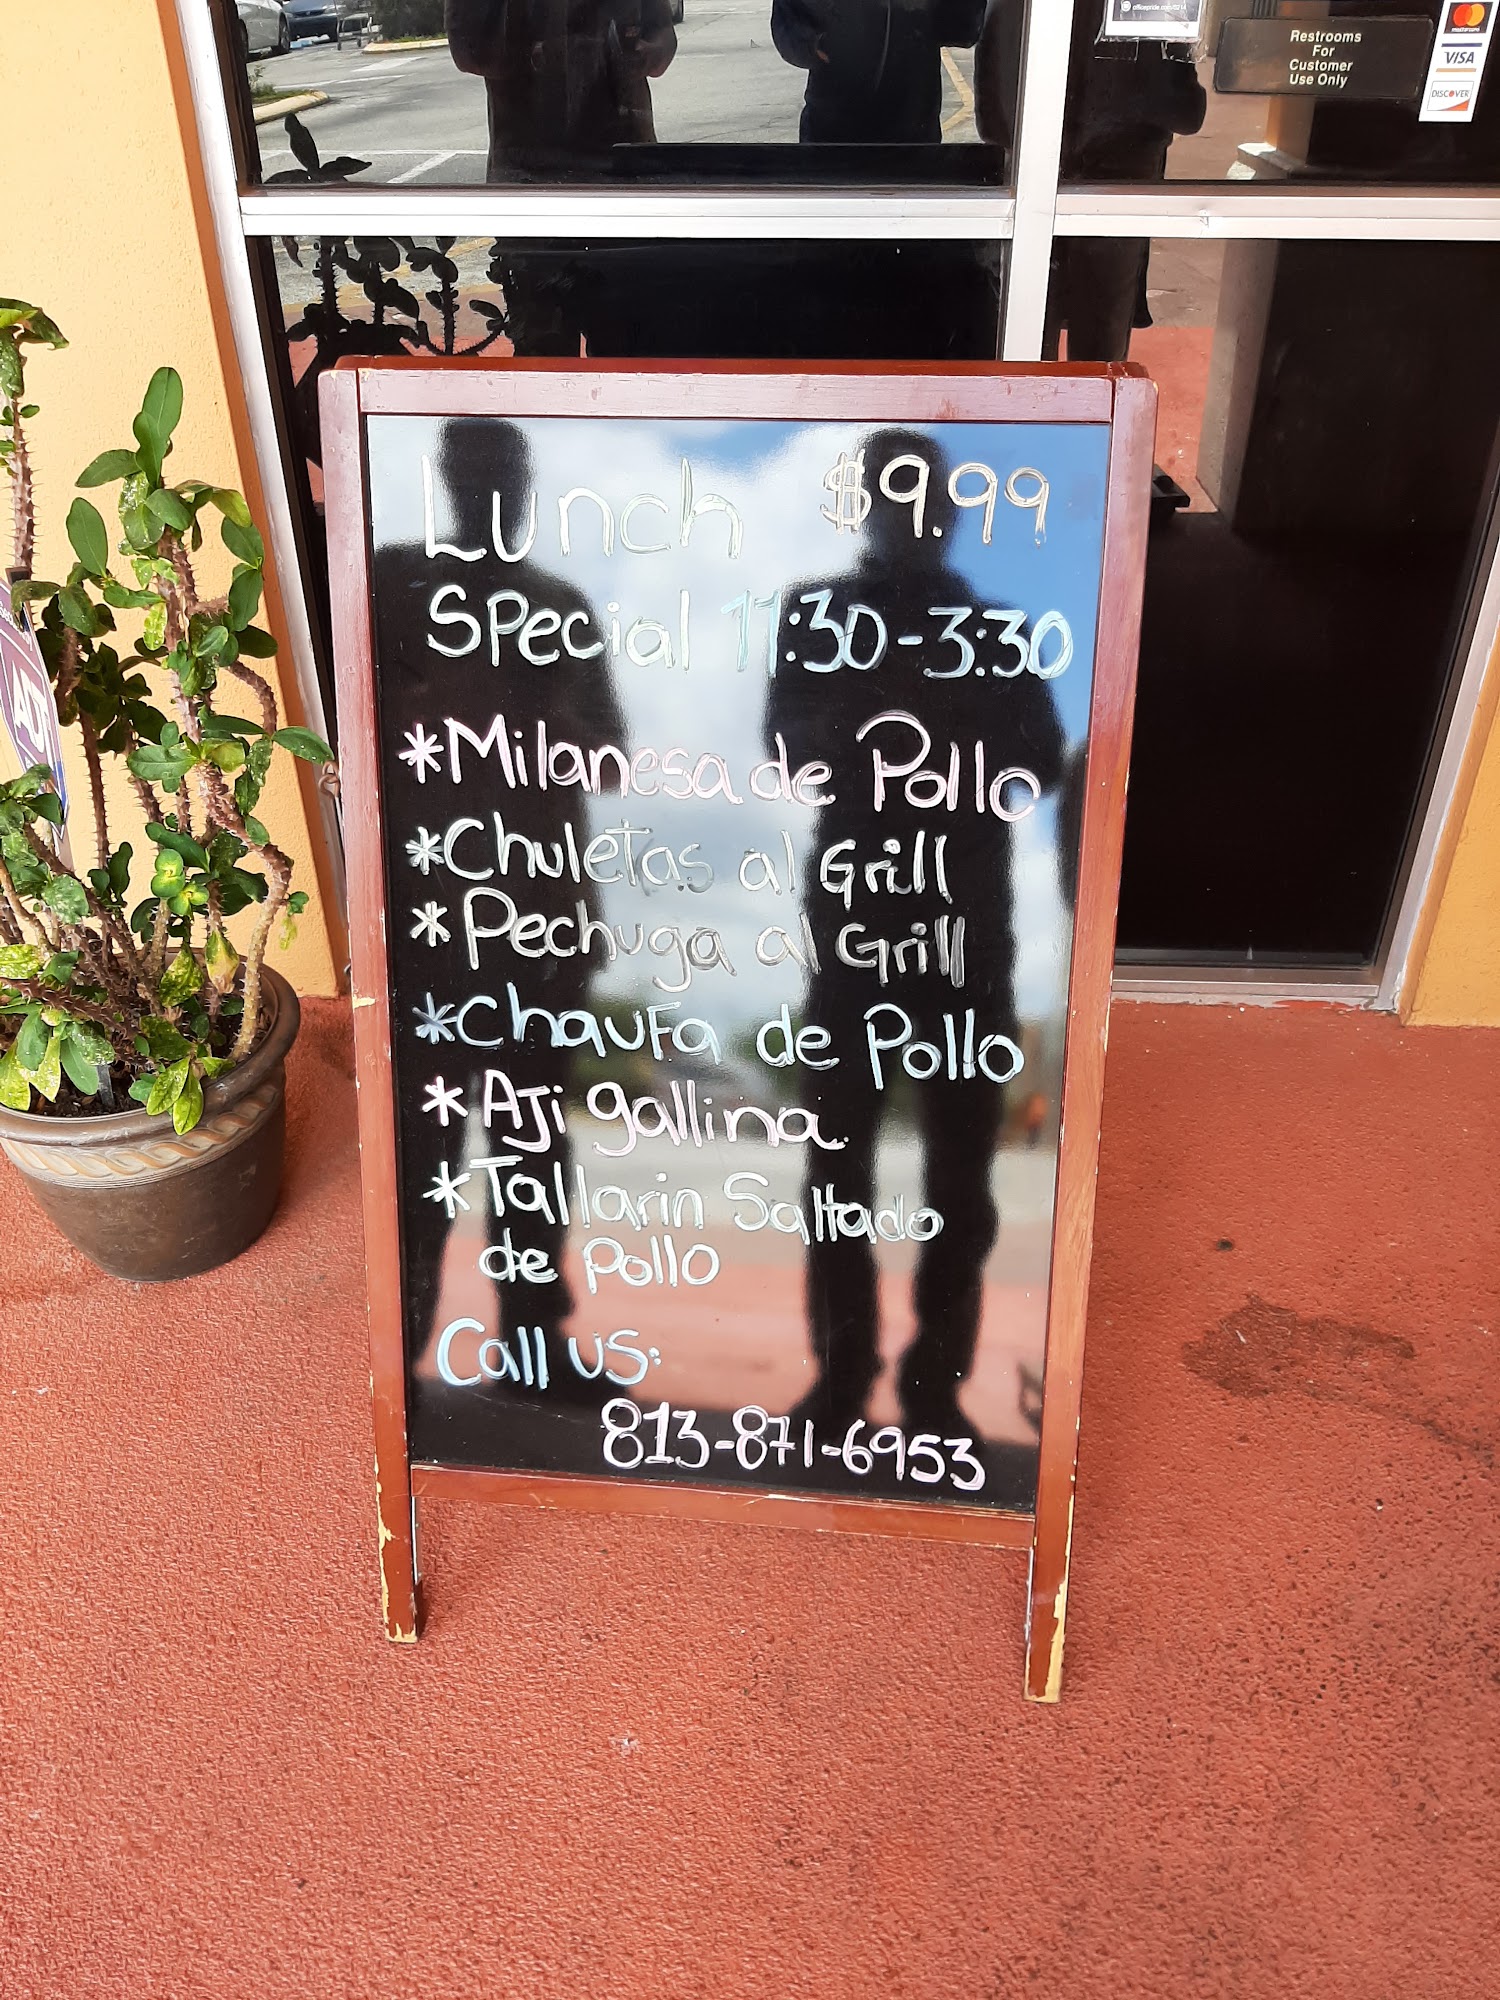 officepride.com/0214
Restrooms
For
Customer
Use Only
mastercard
VISA
DISCOVER
ADT
Lunch $9.99
Special 11:30-3:30
*Milanesa de Pollo
*Chuletas al Grill
*Pechuga al Grill
*Chaufa de Pollo
*Aji gallina
*Tallarin Saltado
de Pollo
Call us:
813-871-6953